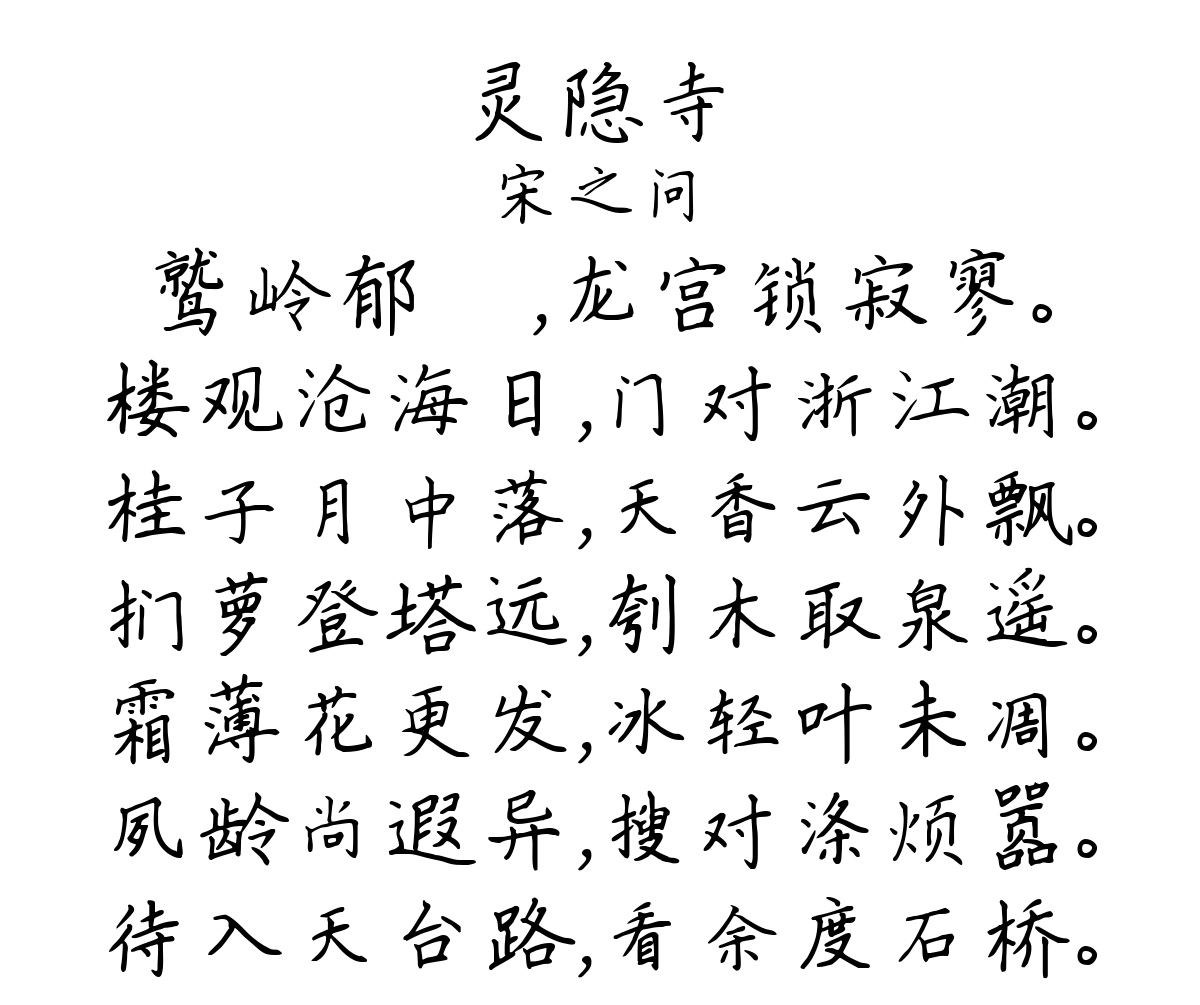 灵隐寺
宋之问
鹫岭郁 ,龙宫锁寂寥。
楼观沧海日,门对浙江潮。
桂子月中落,天香云外飘。
扪萝登塔远,刳木取泉遥。
霜薄花更发,冰轻叶未凋。
夙龄尚遐异,搜对涤烦嚣。
待入天台路,看余度石桥。